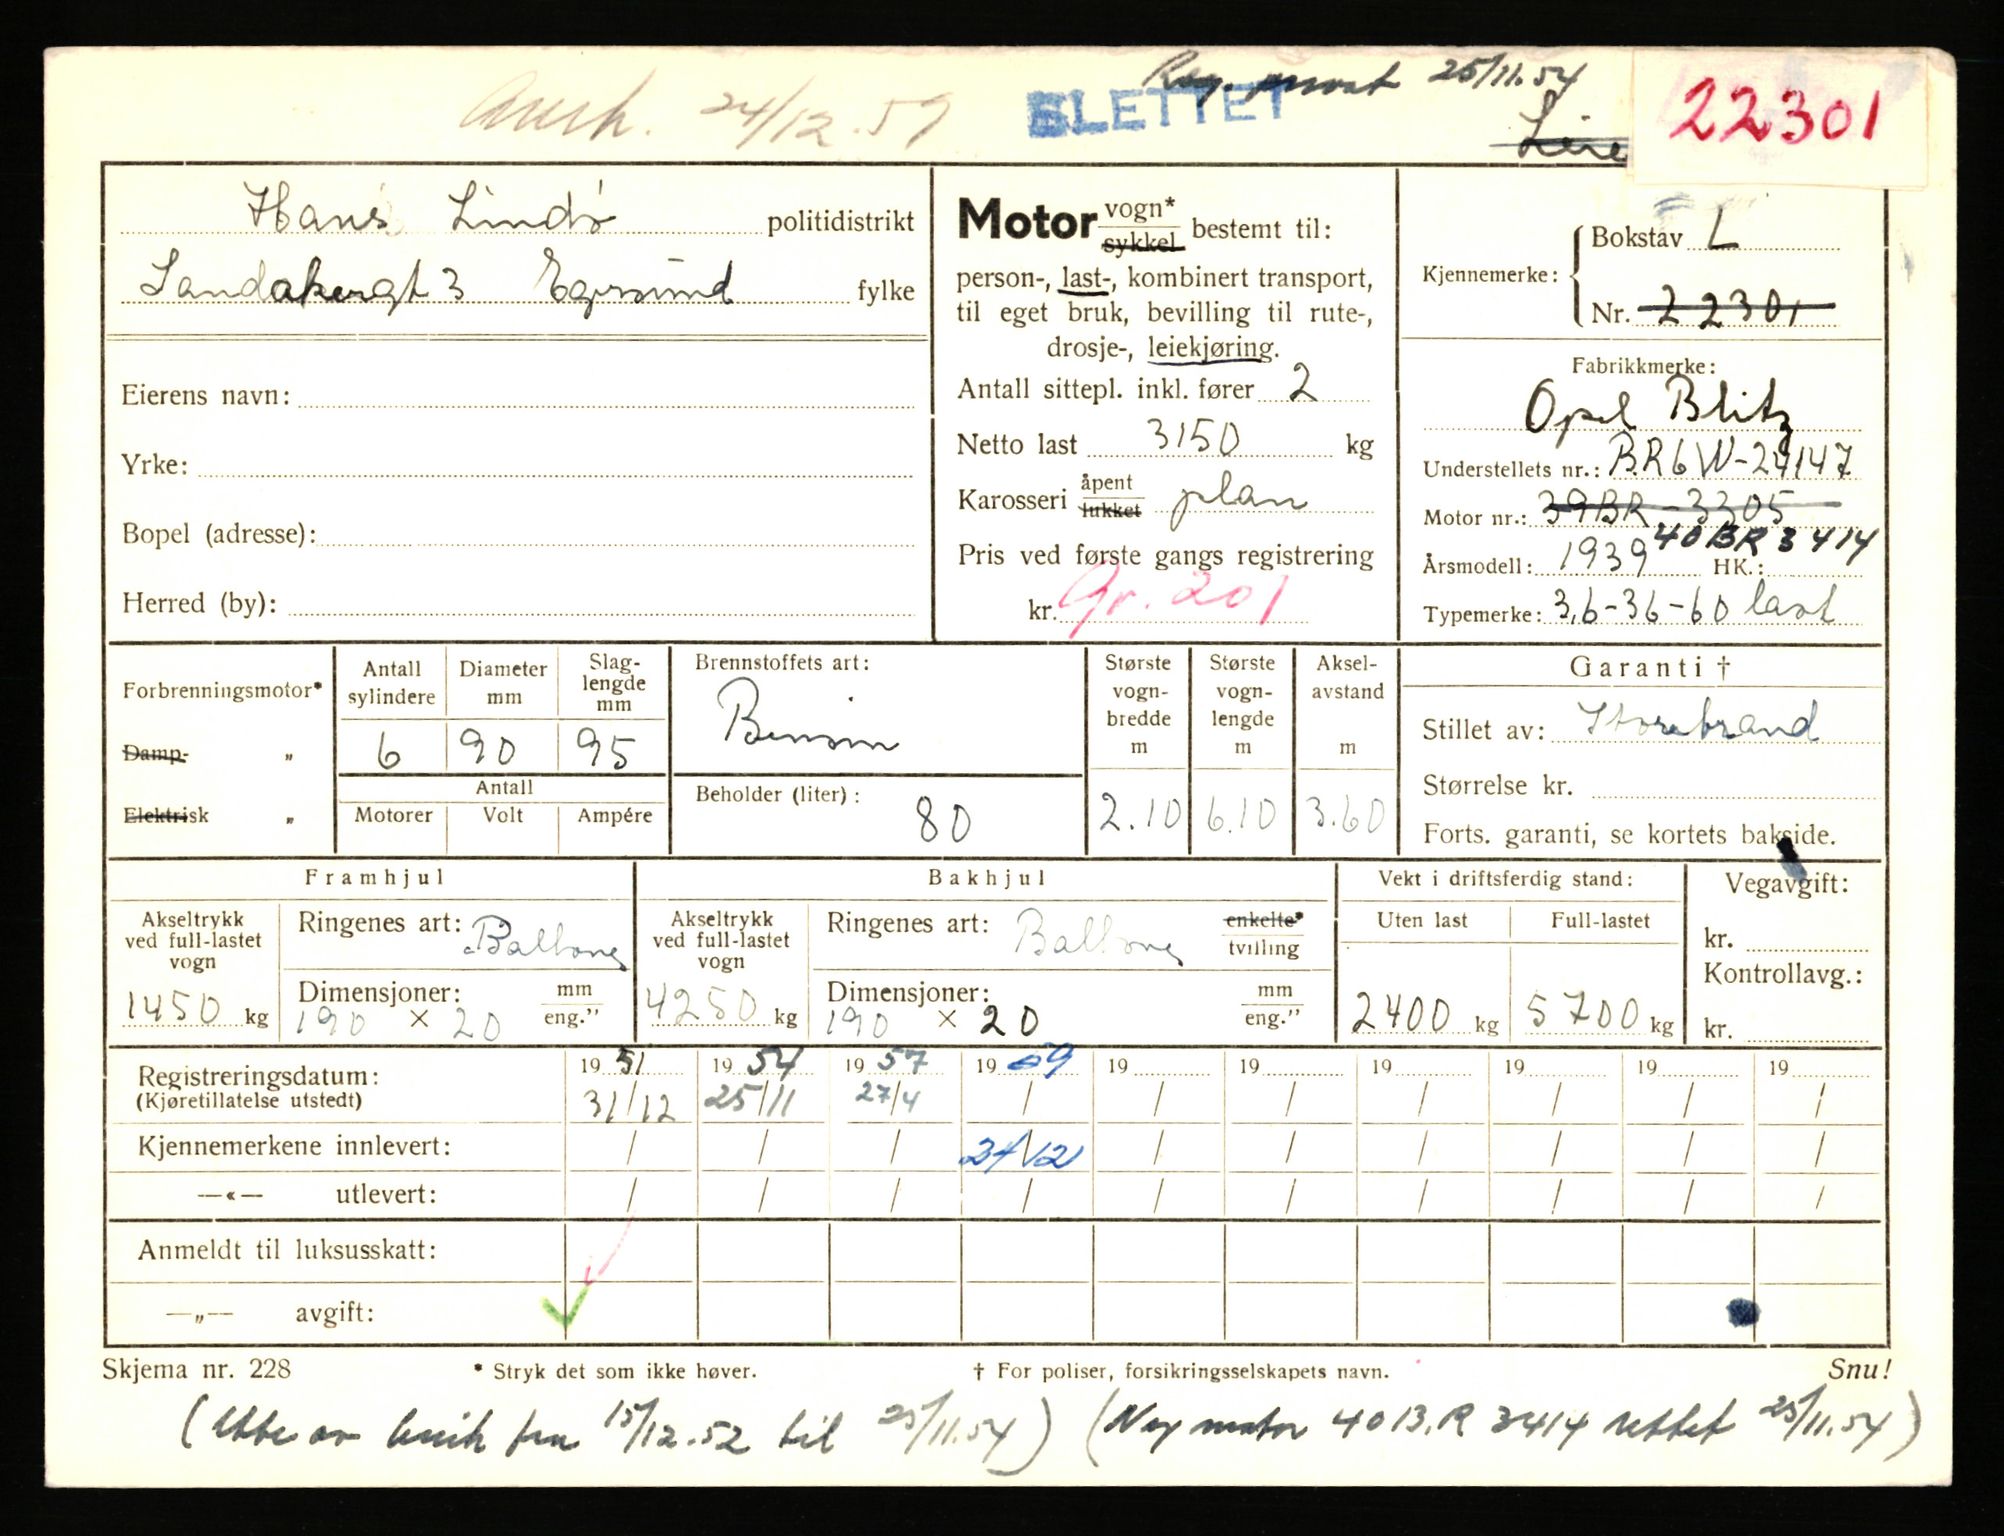 Avsk. 24/12.59
SLETTET
Reg. privat 25/11.54
Leie
22301
Hans Lindø politidistrikt
Sandakergt 3 Egersund fylke
Eierens navn:
Yrke:
Bopel (adresse):
Herred (by):
Motor vogn* sykkel bestemt til:
person-, last-, kombinert transport,
til eget bruk, bevilling til rute-,
drosje-, leiekjøring.
Antall sittepl. inkl. fører 2
Netto last 3150 kg
Karosseri åpent lukket plan
Pris ved første gangs registrering
kr. Gr. 201
Kjennemerke: Bokstav L
Nr. 22301
Fabrikkmerke:
Opel Blitz
Understellets nr.: BR6W-24147
Motor nr.: 39BR-3305
40BR3414
Årsmodell: 1939 HK.:
Typemerke: 3,6-36-60 last
Forbrenningsmotor*
Damp- „
Elektrisk „
Antall sylindere 6
Diameter mm 90
Slag-lengde mm 95
Antall
Motorer Volt Ampére
Brennstoffets art:
Bensin
Beholder (liter): 80
Største vogn-bredde m 2.10
Største vogn-lengde m 6.10
Aksel-avstand m 3.60
Garanti †
Stillet av: Storebrand
Størrelse kr.
Forts. garanti, se kortets bakside.
Framhjul
Akseltrykk ved full-lastet vogn 1450 kg
Ringenes art: Ballong
Dimensjoner: mm eng."
190 × 20
Bakhjul
Akseltrykk ved full-lastet vogn 4250 kg
Ringenes art: Ballong enkelte* tvilling
Dimensjoner: mm eng."
190 × 20
Vekt i driftsferdig stand:
Uten last Full-lastet
2400 kg 5700 kg
Vegavgift:
kr.
Kontrollavg.:
kr.
19 51 19 54 19 57 19 59 19 19 19 19 19 19
Registreringsdatum: 31/12 25/11 27/4 / / / / / / /
(Kjøretillatelse utstedt)
Kjennemerkene innlevert: / / / 24/12 / / / / / /
—«— utlevert: / / / / / / / / / /
Anmeldt til luksusskatt:
—„— avgift:
Skjema nr. 228 * Stryk det som ikke høver. † For poliser, forsikringsselskapets navn. Snu!
(Ute av bruk fra 15/12.52 til 25/11.54) (Ny motor 40B.R 3414 rettet 25/11.54)